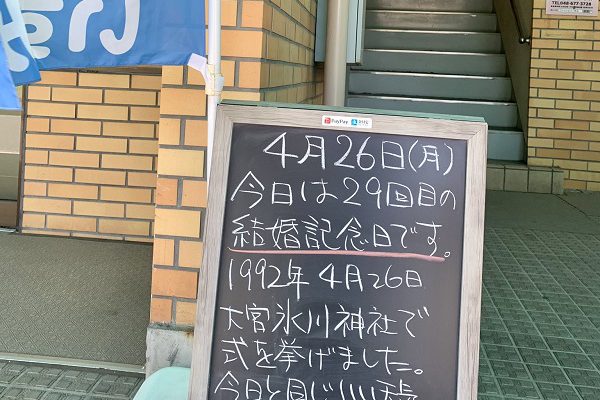 TEL048-677-3728
PayPay
4月26日(月)
今日は29回目の
結婚記念日です。
1992年 4月26日
大宮氷川神社で
式を挙げました。
今日と同じいい天